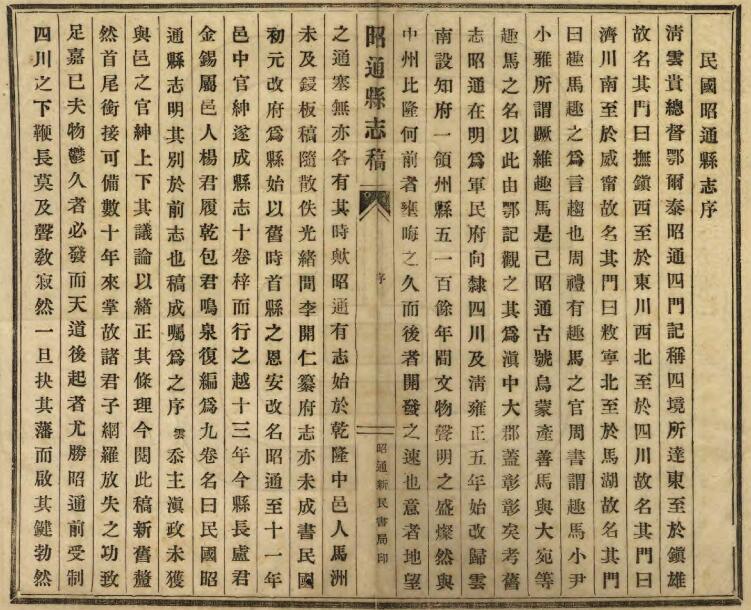 民國昭通縣志序
清雲貴總督鄂爾泰昭通四門記稱四境所達東至於鎮雄
故名其門曰撫鎮西至於東川西北至於四川故名其門曰
濟川南至於威甯故名其門曰敉寧北至於馬湖故名其門
曰趣馬趣之為言趨也周禮有趣馬之官周書謂趣馬小尹
小雅所謂蹶維趣馬是已昭通古號烏蒙產善馬與大宛等
趣馬之名以此由鄂記觀之其爲滇中大郡蓋彰彰矣考舊
志昭通在明爲軍民府向隸四川及清雍正五年始改歸雲
南設知府一領州縣五一百餘年間文物聲明之盛燦然與
中州比隆何前者壅晦之久而後者開發之速也意者地望
昭通縣志稿
序
昭通新民書局印
之通塞無亦各有其時歟昭通有志始於乾隆中邑人馬洲
未及鋟板稿隨散佚光緒間李開仁纂府志亦未成書民國
初元改府爲縣始以舊時首縣之恩安改名昭通至十一年
邑中官紳遂成縣志十卷梓而行之越十三年今縣長盧君
金錫屬邑人楊君履乾包君鳴泉復編爲九卷名曰民國昭
通縣志明其別於前志也稿成囑爲之序雲忝主滇政未獲
與邑之官紳上下其議論以緒正其條理今閱此稿新舊釐
然首尾銜接可備數十年來掌故諸君子網羅放失之功致
足嘉已夫物鬱久者必發而天道後起者尤勝昭通前受制
四川之下鞭長莫及聲敎寂然一旦抉其藩而啟其鍵勃然